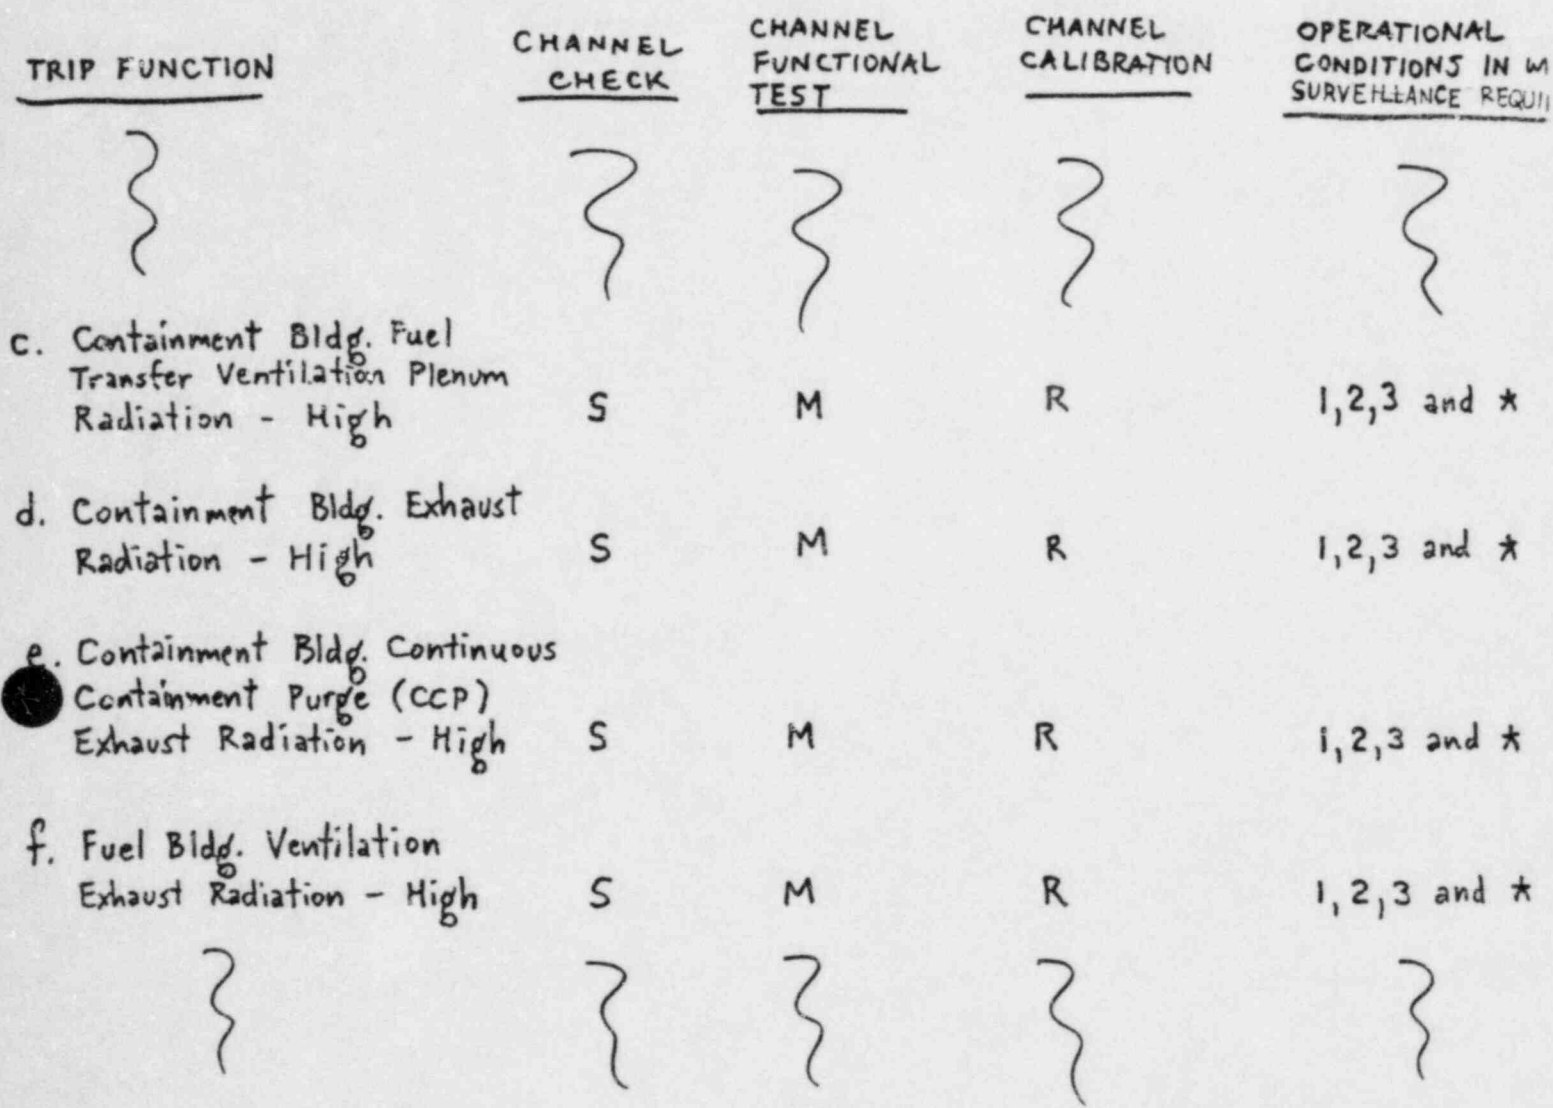 TRIP FUNCTION
CHANNEL
CHECK
CHANNEL
FUNCTIONAL
TEST
CHANNEL
CALIBRATION
OPERATIONAL
CONDITIONS IN
SURVEILLANCE
c. Containment Bldg. Fuel
Transfer Ventilation Plenum
Radiation - High S M R 1,2,3 and *
d. Containment Bldg. Exhaust
Radiation - High S M R 1,2,3 and *
e. Containment Bldg. Continuous
Containment Purge (CCP)
Exhaust Radiation - High S M R 1,2,3 and *
f. Fuel Bldg. Ventilation
Exhaust Radiation - High S M R 1,2,3 and *